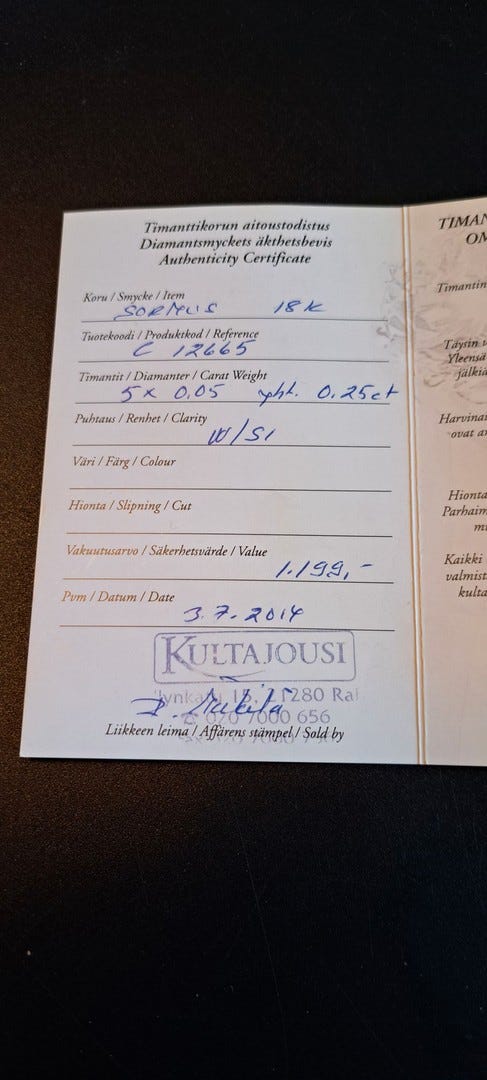 Timanttikorun aitoustodistus
Diamantsmyckets äkthetsbevis
Authenticity Certificate
Koru / Smycke / Item
SORMUS 18K
Tuotekoodi / Produktkod / Reference
C 12665
Timantit / Diamanter / Carat Weight
5 x 0.05 yht. 0.25ct
Puhtaus / Renhet / Clarity
W/SI
Väri / Färg / Colour
Hionta / Slipning / Cut
Vakuutusarvo / Säkerhetsvärde / Value
1.199,-
Pvm / Datum / Date
3.7.2014
KULTAJOUSI
280
020 7000 656
Liikkeen leima / Affärens stämpel / Sold by
TIMAN
OM
Timantin
Täysin
Yleensä
jälkiä
Harvinai
ovat
Hionta
Parhaim
Kaikki
valmist
kulta